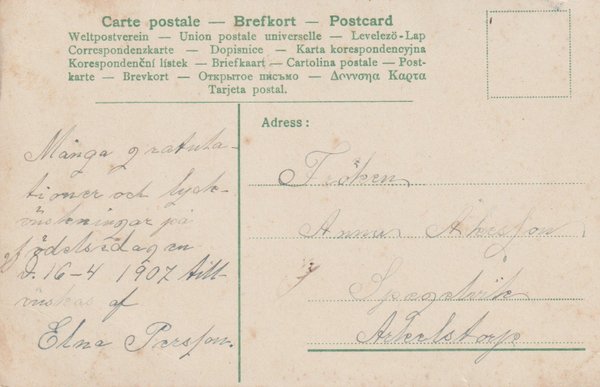 Carte postale — Brefkort — Postcard
Weltpostverein — Union postale universelle — Levelező-Lap
Correspondenzkarte — Dopisnice — Karta korespondencyjna
Korespondenční lístek — Briefkaart — Cartolina postale — Post-
karte — Brevkort — Открытое письмо — Δοννσηα Καρτα
Tarjeta postal.
Adress:
Många gratula-
tioner och lyck-
önskningar på
födelsedagen
d. 16-4 1907 till-
önskas af
Elna Persson.
Fröken
Anna Åkesson
Spegelvik
Arkelstorp